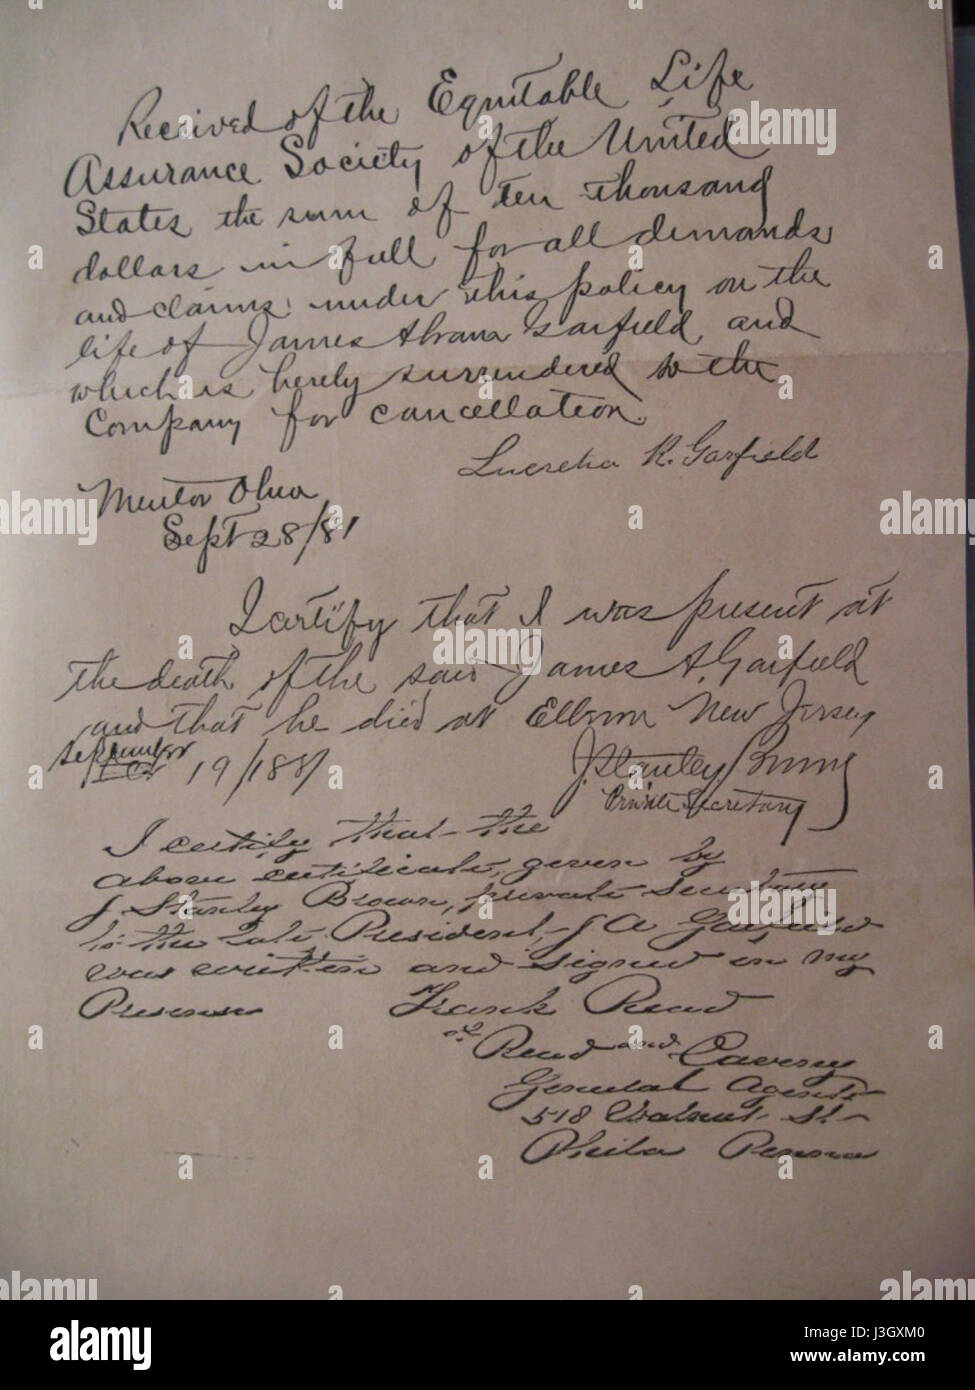 Received of the Equitable Life
Assurance Society of the United
States the sum of ten thousand
dollars in full for all demands
and claims under this policy on the
life of James Abram Garfield, and
which is hereby surrendered to the
Company for cancellation.
Lucretia R. Garfield
Mentor Ohio
Sept 28/81
I certify that I was present at
the death of the said James A. Garfield
and that he died at Elberon New Jersey
September
19/1881
J. Stanley Brown
Private Secretary
I certify that the
above certificate, given by
J. Stanley Brown, private Secretary
to the late President, J A Garfield
was written and signed in my
Presence
Frank Read
of
Read and Caversy
General Agents
518 Walnut St
Phila Penna
a alamy stock photo
alamy
www.alamy.com
Image ID: J3GXM0